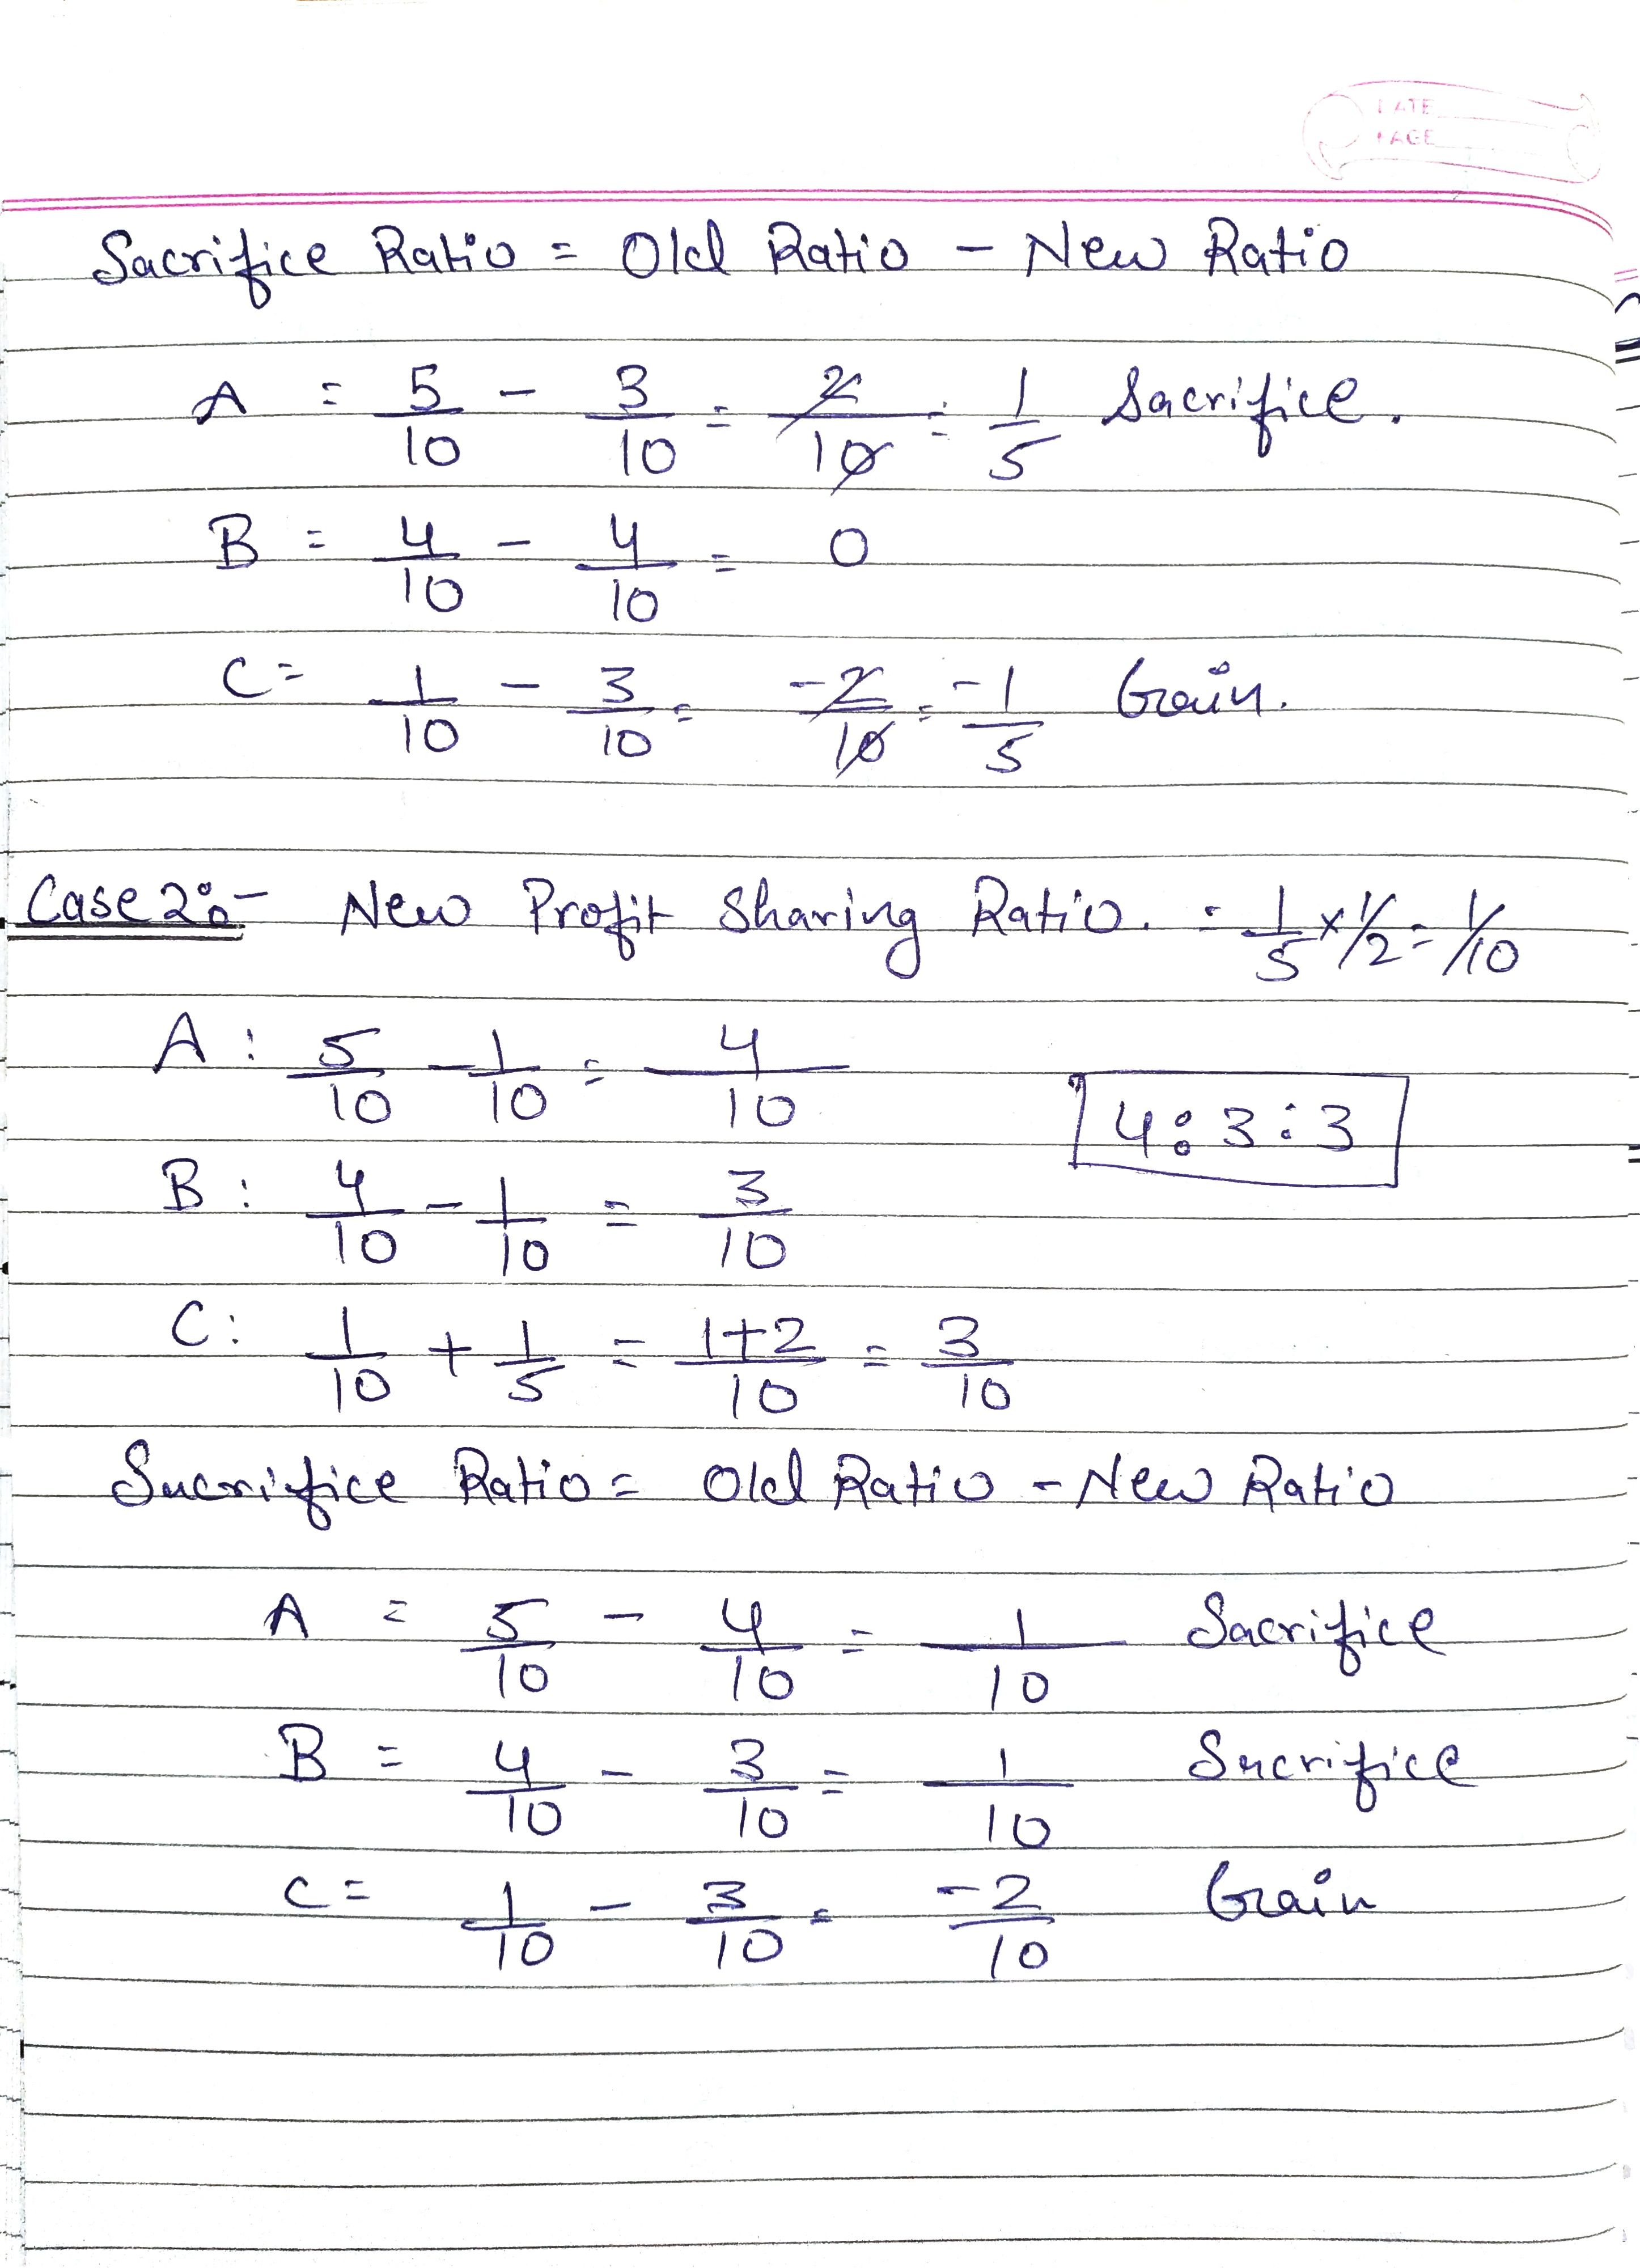 DATE
PAGE
Sacrifice Ratio = Old Ratio - New Ratio
A = 5/10 - 3/10 = 2/10 = 1/5 Sacrifice.
B = 4/10 - 4/10 = 0
C = 1/10 - 3/10 = -2/10 = -1/5 Gain.
Case 2:- New Profit Sharing Ratio. = 1/5 x 1/2 = 1/10
A : 5/10 - 1/10 = 4/10
4:3:3
B : 4/10 - 1/10 = 3/10
C : 1/10 + 1/5 = 1+2/10 = 3/10
Sacrifice Ratio = Old Ratio - New Ratio
A = 5/10 - 4/10 = 1/10 Sacrifice
B = 4/10 - 3/10 = 1/10 Sacrifice
C = 1/10 - 3/10 = -2/10 Gain